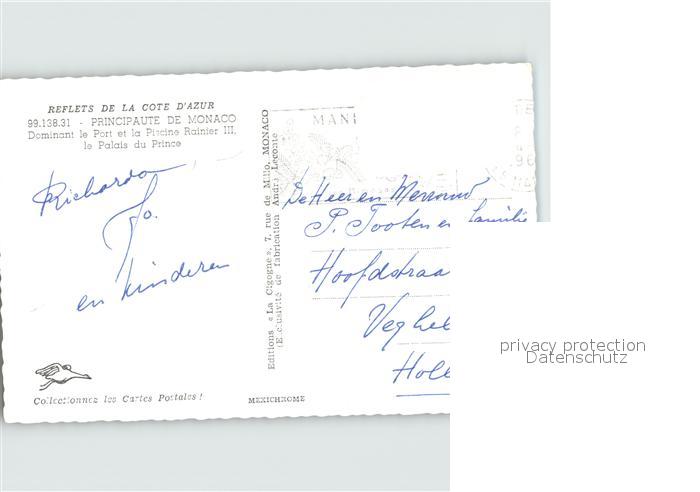 REFLETS DE LA COTE D'AZUR
99.138.31 - PRINCIPAUTE DE MONACO
Dominant le Port et la Piscine Rainier III,
le Palais du Prince
Jo.
en kinderen
Collectionnez les Cartes Postales !
Editions « La Cigogne », 7, rue de Millo, MONACO
(Exclusivité de fabrication André Leconte
MEXICHROME
MANI
De Heer en
P. Tooten en familie
Hoofdstraa
Veghel
Holl
privacy protection
Datenschutz